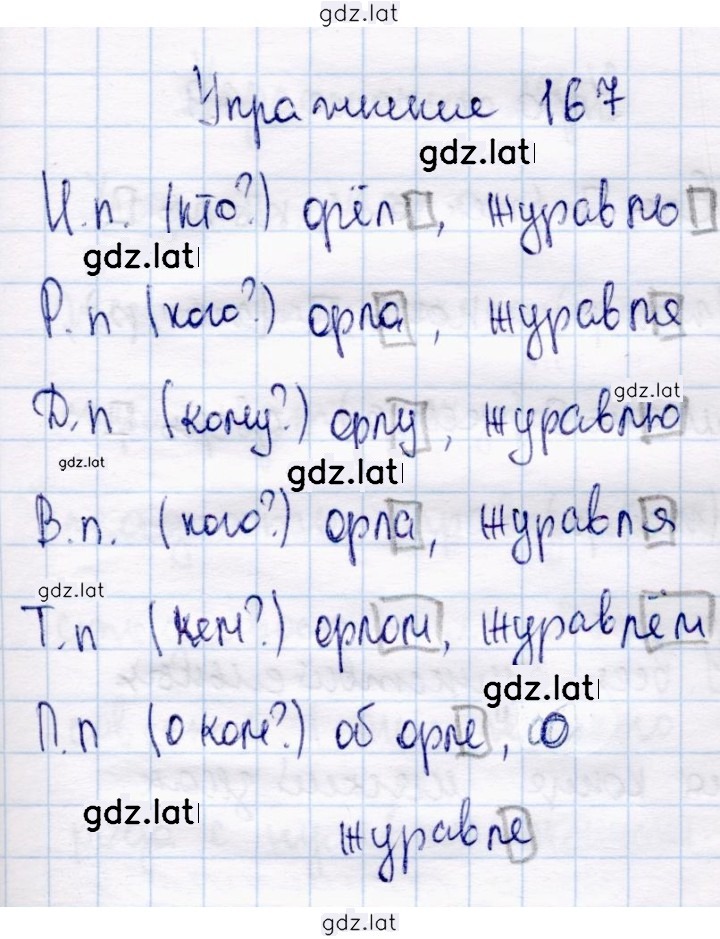 gdz.lat
Упражнение 167
gdz.lat
И.п. (кто?) орёл, журавль
gdz.lat
Р.п (кого?) орла, журавля
gdz.lat
Д.п (кому?) орлу, журавлю
gdz.lat
gdz.lat
В.п. (кого?) орла, журавля
gdz.lat
Т.п (кем?) орлом, журавлём
gdz.lat
П.п (о ком?) об орле, о
gdz.lat
журавле
gdz.lat